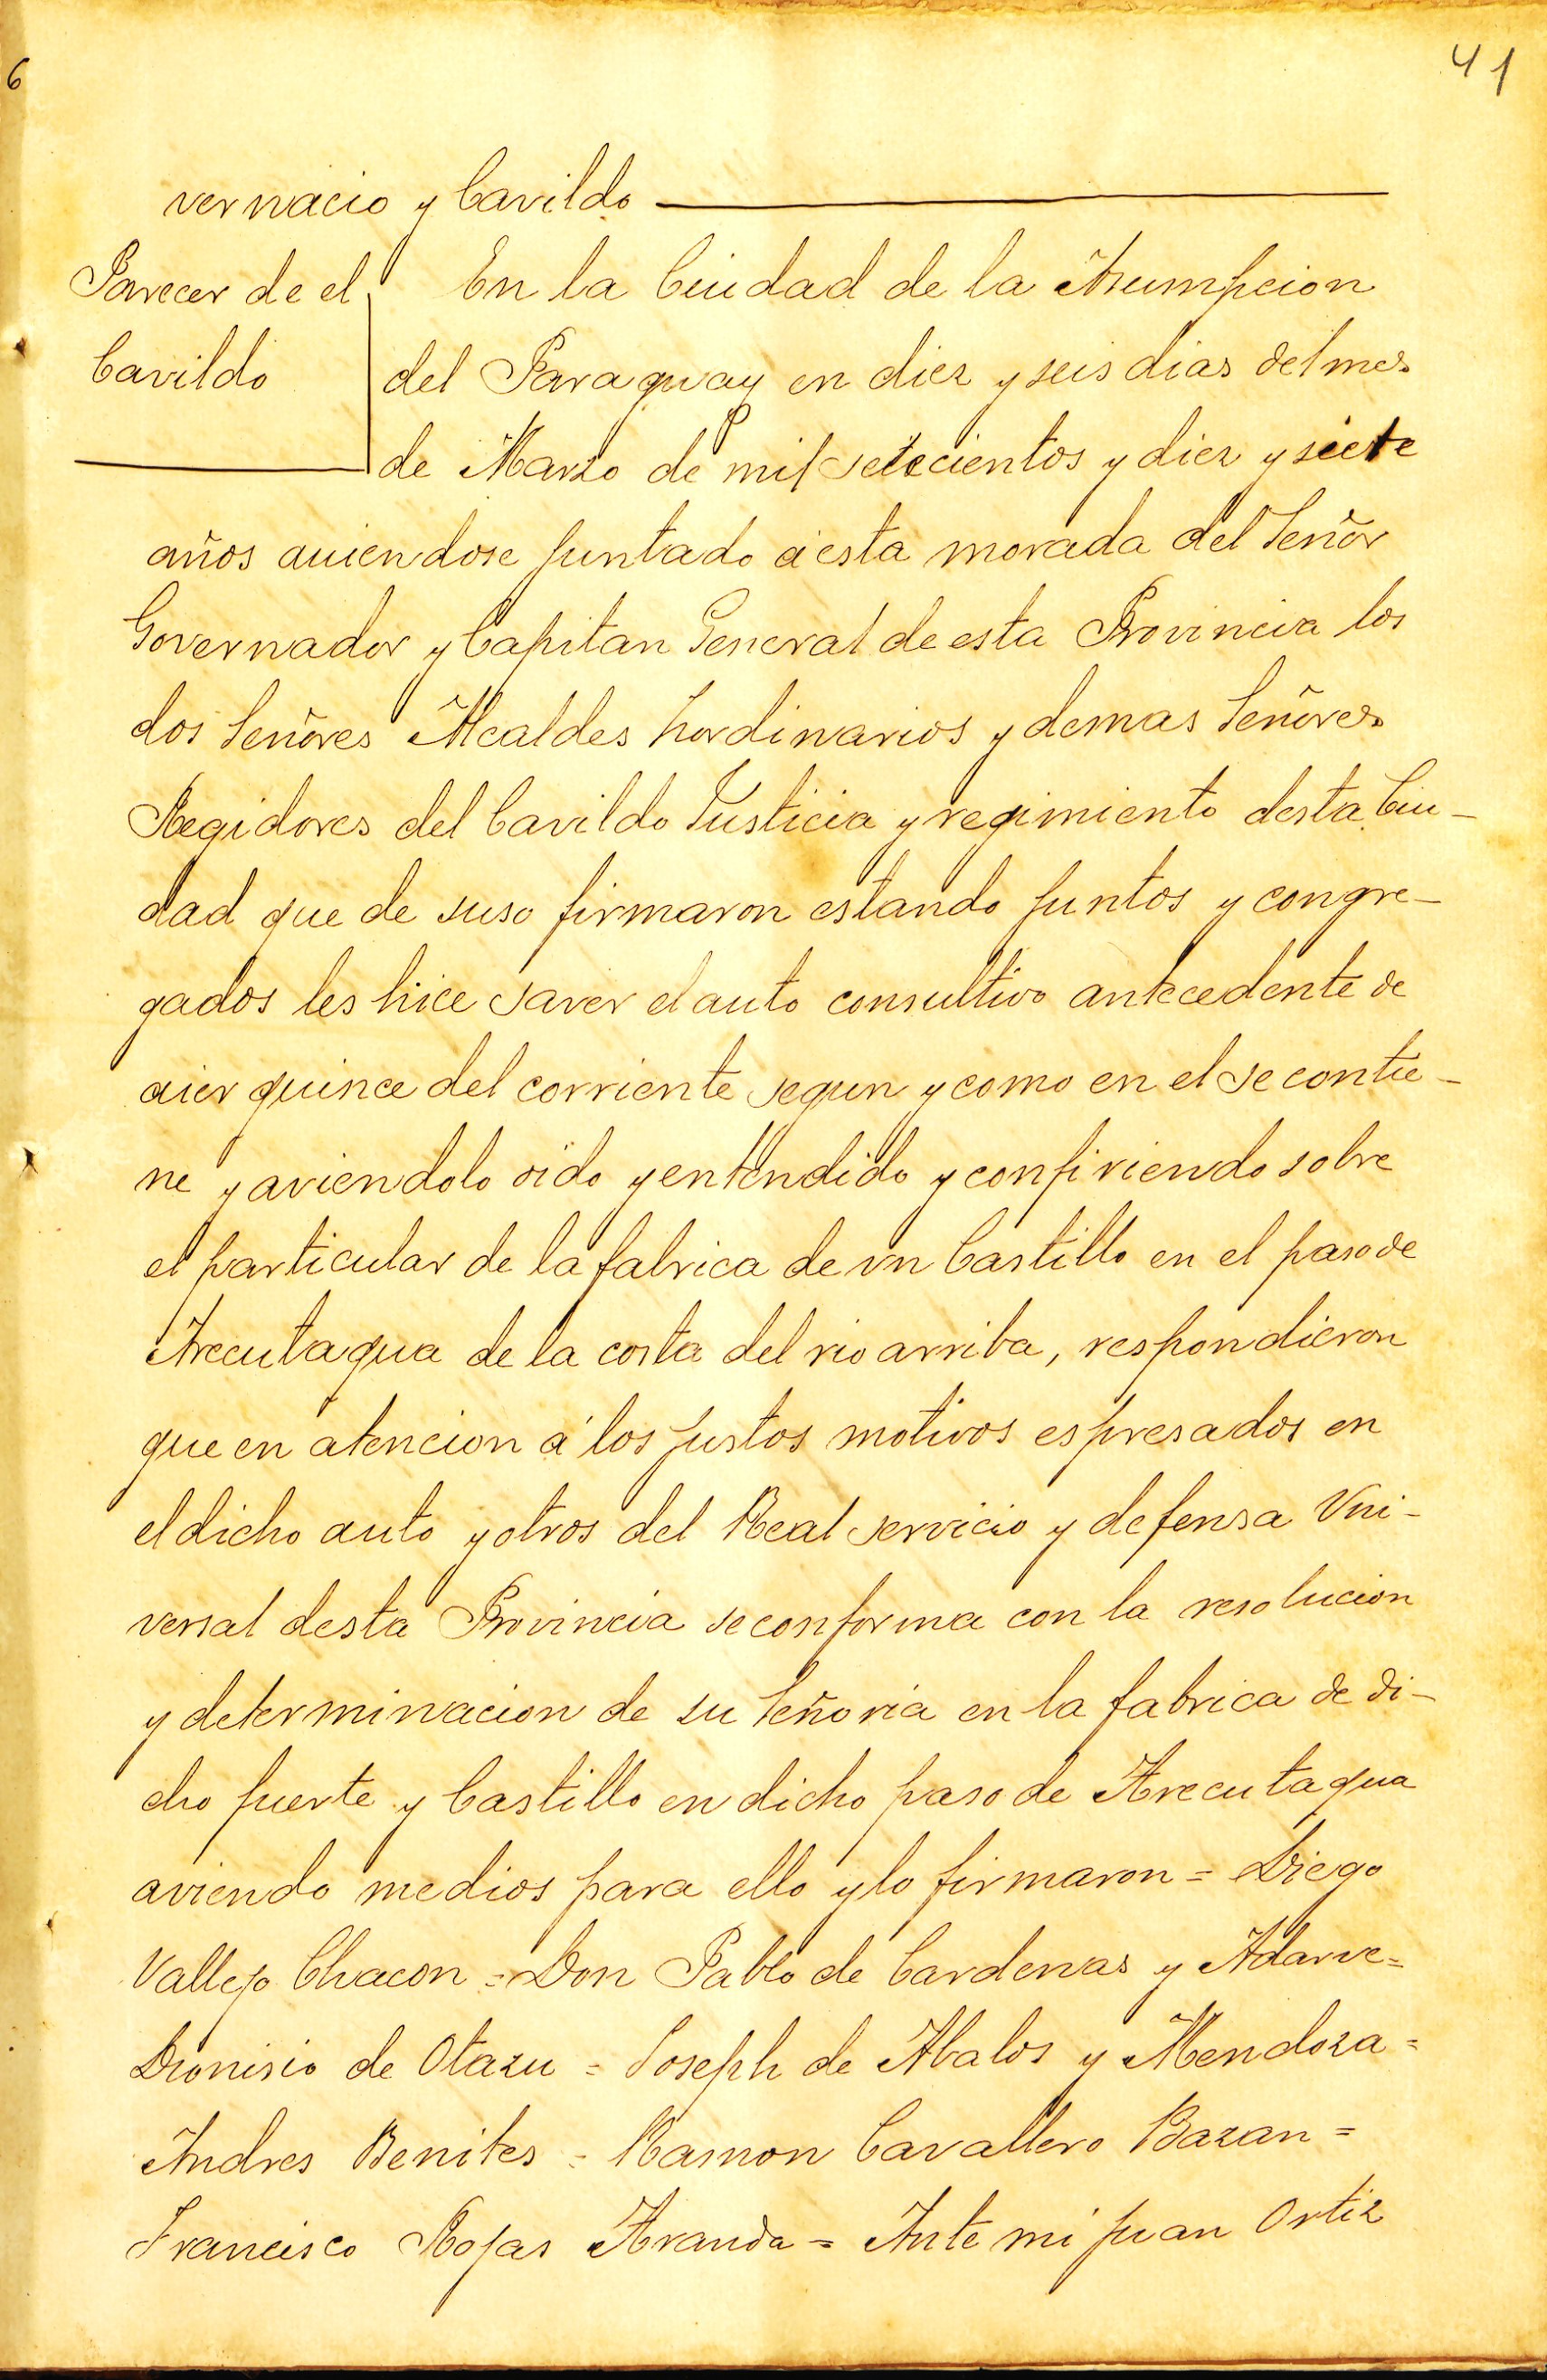 6
41
vernacio y Cavildo
Parecer de el
Cavildo
En la Ciudad de la Asumpcion
del Paraguay en diez y seis dias del mes
de Marzo de mil setecientos y diez y siete
años auiendose juntado á esta morada del Señor
Governador y Capitan General de esta Provincia los
dos Señores Alcaldes hordinarios y demas Señores
Regidores del Cavildo Justicia y regimiento desta Ciu-
dad que de suso firmaron estando juntos y congre-
gados les hice saver el auto consultivo antecedente de
aier quince del corriente segun y como en el se contie-
ne y aviendolo oido y entendido y confiriendo sobre
el particular de la fabrica de vn Castillo en el paso de
Arecutaqua de la costa del rio arriba, respondieron
que en atencion á los justos motivos espresados en
el dicho auto y otros del Real servicio y defensa Vni-
versal desta Provincia se conforma con la resolucion
y determinacion de su Señoria en la fabrica de di-
cho fuerte y Castillo en dicho paso de Arecutaqua
aviendo medios para ello y lo firmaron = Diego
Vallejo Chacon = Don Pablo de Cardenas y Adarve =
Dionisio de Otazu = Joseph de Abalos y Mendoza =
Andres Benites = Ramon Cavallero Bazan =
Francisco Rojas Aranda = Ante mi juan Ortiz